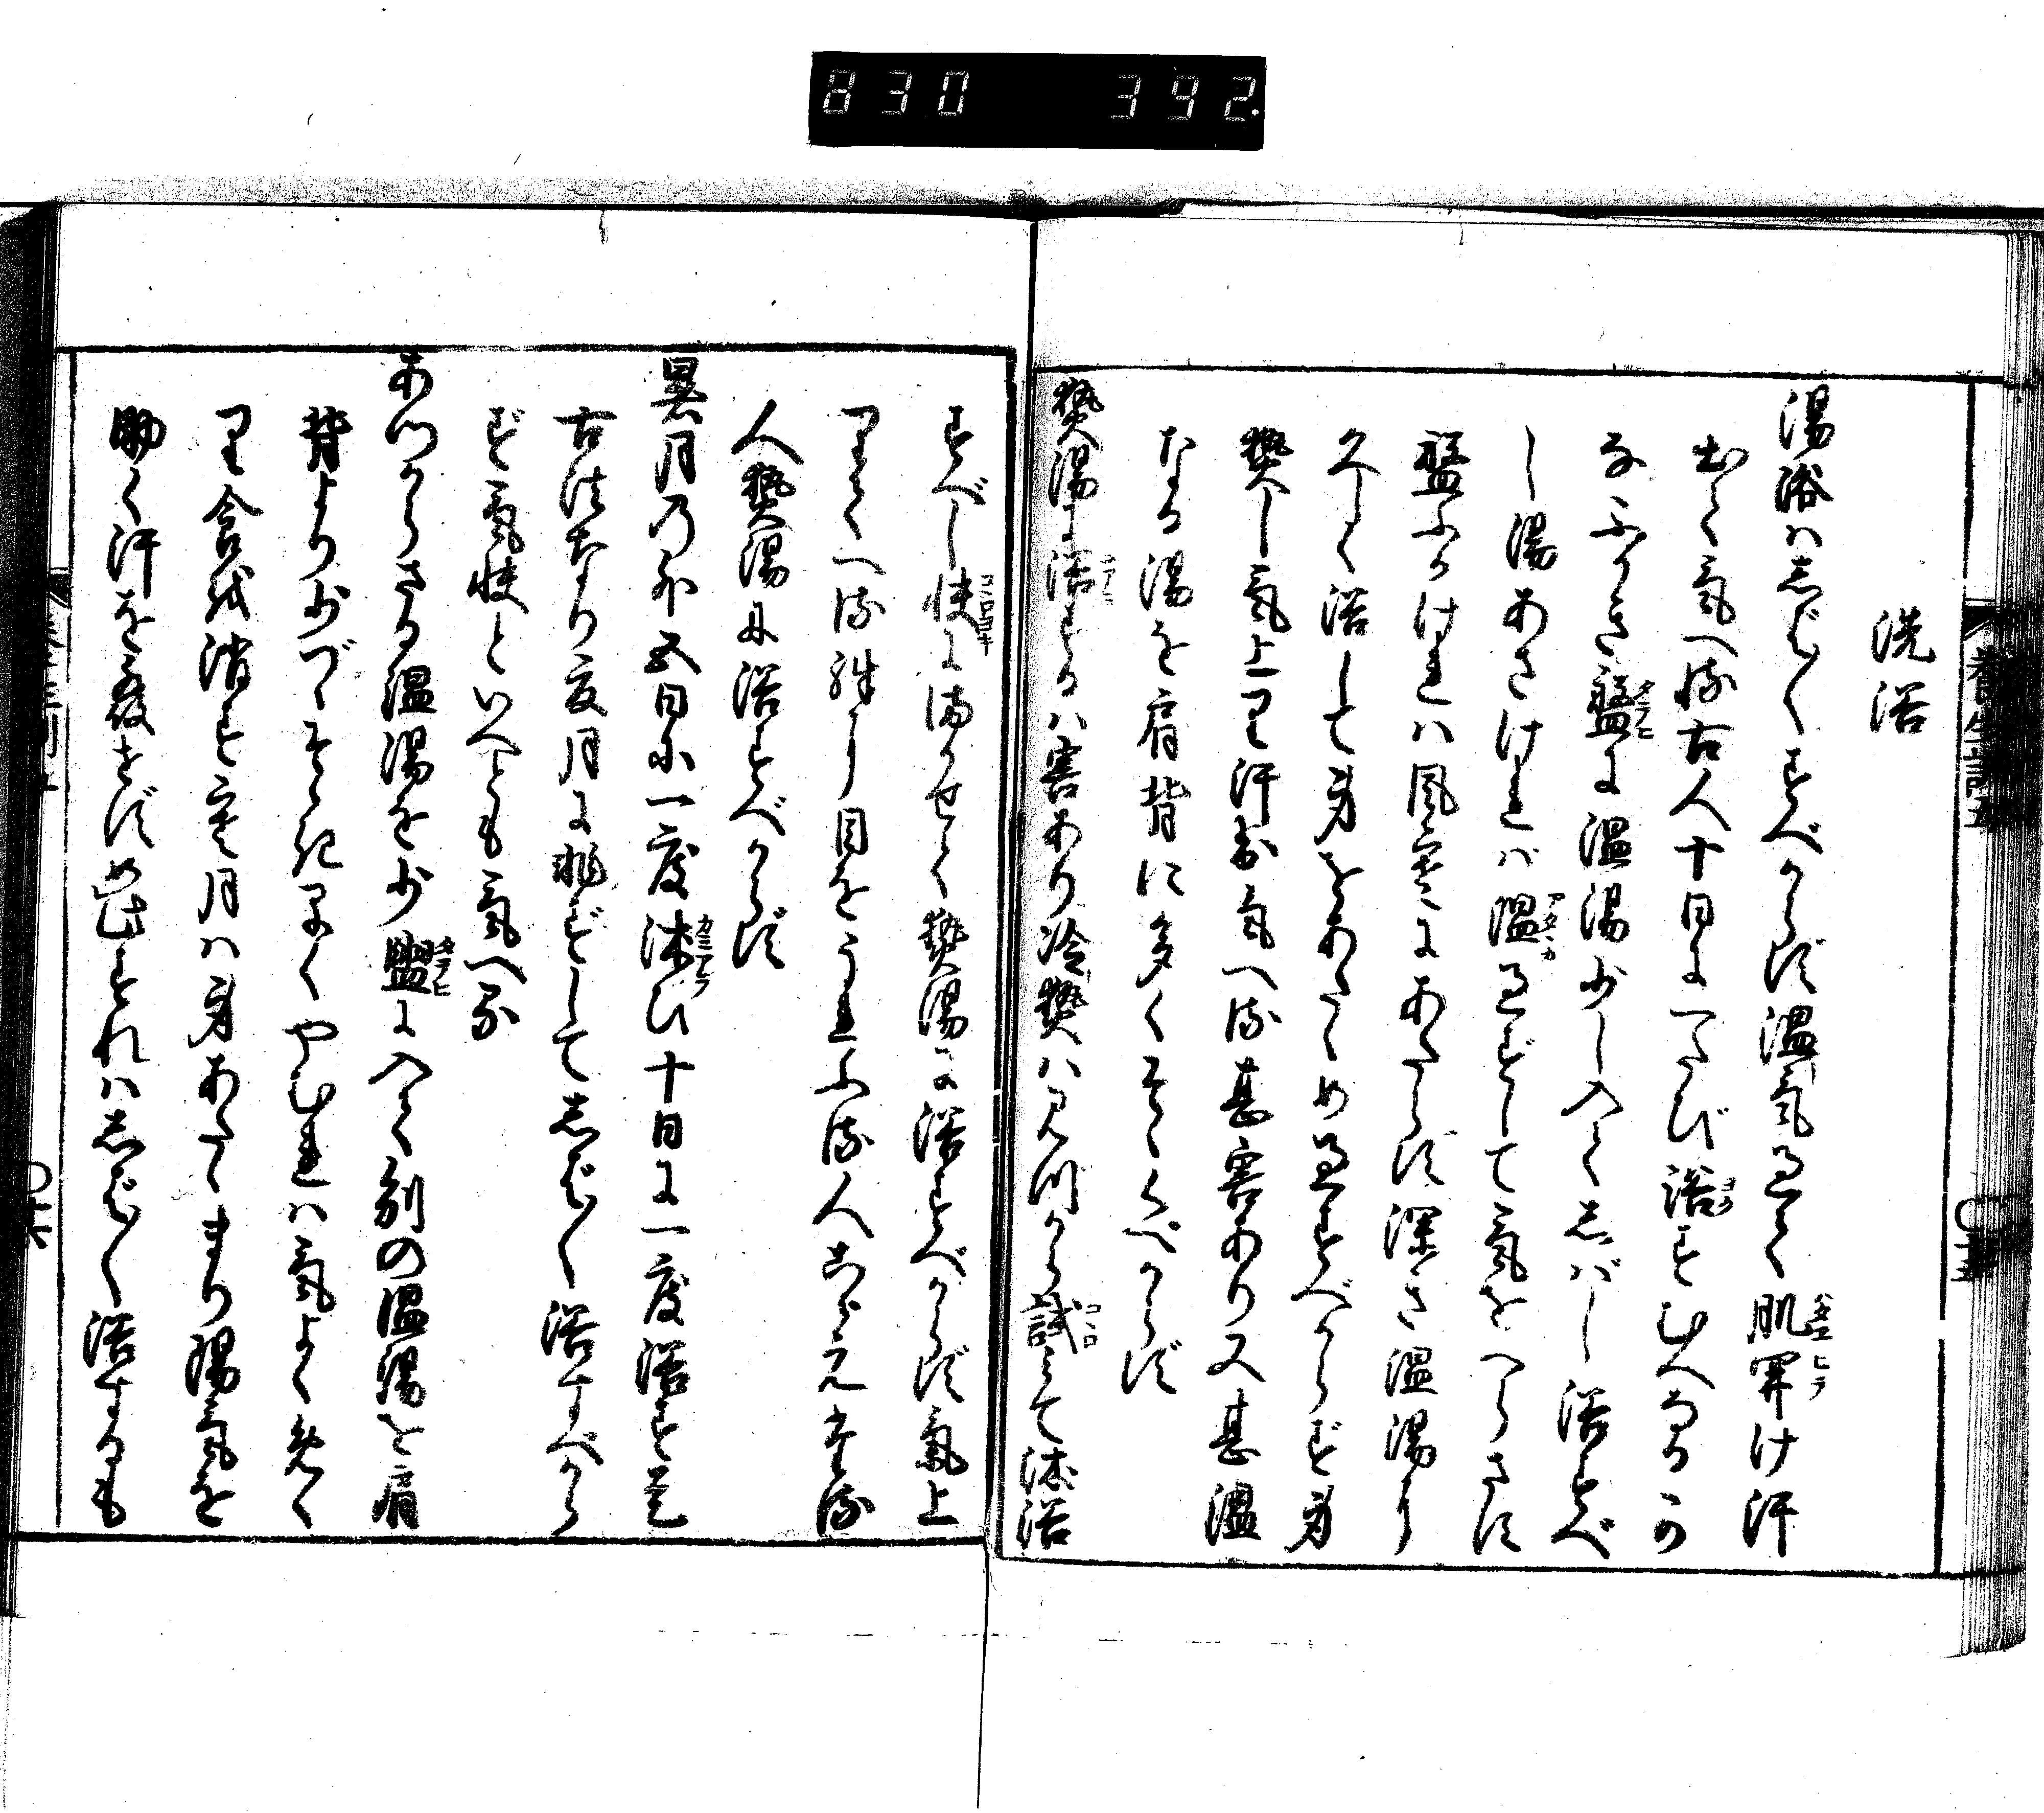 830 392.
養生訓五
洗浴
湯浴ハしば〱すべからず温気過て肌開け汗
出て気へる古人十日に一たび浴すむべなるか
なふかき盤に温湯少し入てしバし浴すべ
し湯あさけれバ温過ずして気をへらさず
盤ふかけれハ風寒にあたらず深き温湯に
久しく浴して身をあたゝめ過すべからず身
熱し気上り汗出気へる甚害あり又甚温
なる湯を肩背に多くそゝくべからず
熱湯に浴するハ害あり冷熱ハみづから試みて沐浴
すべし快にまかせて熱湯に浴すべからず気上
りてへる殊に目をうれふる人こゞえたる
人熱湯に浴すべからず
暑月の外五日に一度沐ひ十日に一度浴す是
古法なり夏月に非ずしてしば〱浴すべから
ず気快といへども気へる
あつからざる温湯を少盤に入て別の温湯を肩
背より少づゝそゝぎ早くやむれハ気よくめぐ
り食を消す寒月ハ身あたゝまり陽気を
助く汗を発せず如此すれハしば〱浴するも